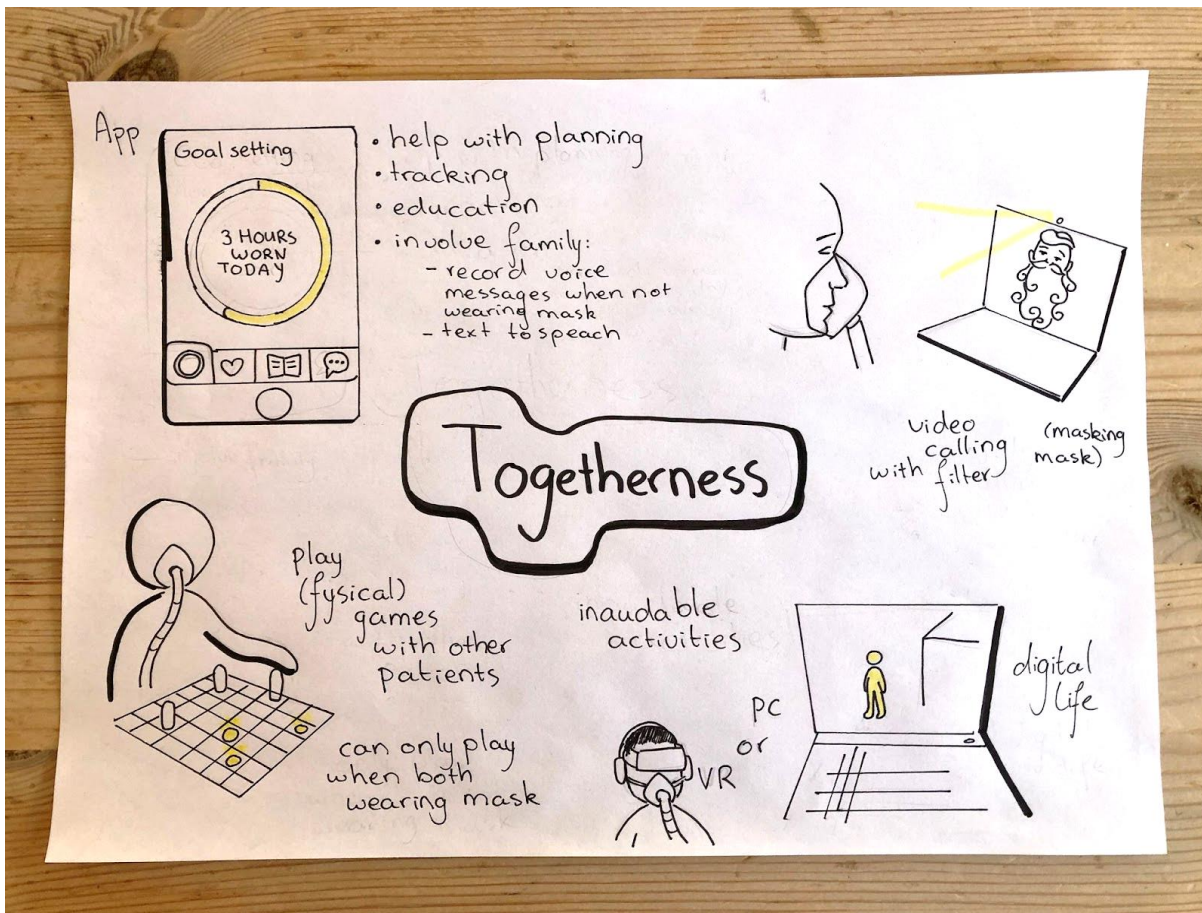 App
Goal setting
3 HOURS
WORN
TODAY
• help with planning
• tracking
• education
• involve family:
- record voice
messages when not
wearing mask
- text to speach
video
calling
with filter
(masking
mask)
Togetherness
play
(fysical)
games
with other
patients
can only play
when both
wearing mask
inaudable
activities
PC
or
VR
digital
life